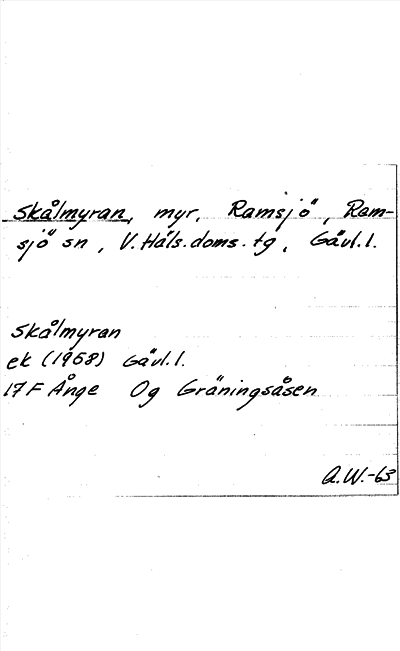 Skålmyran, myr, Ramsjö, Ram-
sjö sn, V. Häls. doms. tg, Gävl. l.
Skålmyran
ek (1958) Gävl. l.
17 F Ånge Og Gräningsåsen
A.W.-63